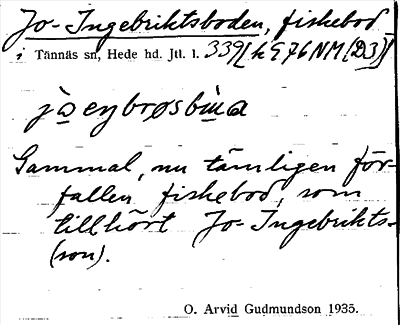 Jo-Ingebriktsboden, fiskebod
i Tännäs sn, Hede hd. Jtl. l. 339[k976NM(D3)]
jo̲eŋbrøsbu̲a
Gammal, nu tämligen för-
fallen fiskebod, som
tillhört Jo-Ingebrikts-
(son).
O. Arvid Gudmundson 1935.